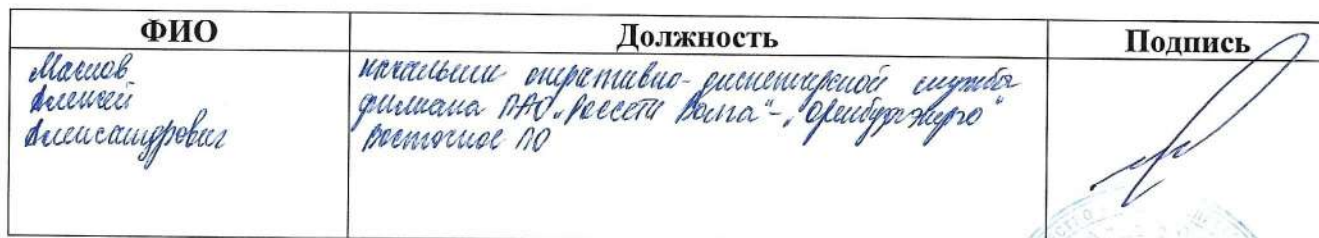 ФИО Должность Подпись
Маслов
Алексей
Александрович
начальник оперативно-диспетчерской службы
филиала ПАО „Россети Волга“ - „Оренбургэнерго“
Восточное ПО